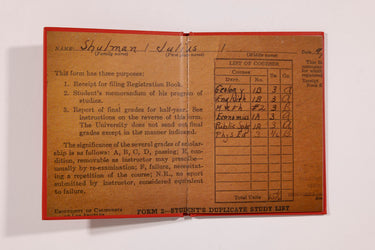 NAME: Shulman / Julius /
(Family name) (First name) (Middle name) Date
LIST OF COURSES
This form has three purposes:
1. Receipt for filing Registration Book.
2. Student's memorandum of his program of studies.
3. Report of final grades for half-year. See
instructions on the reverse of this form.
The University does not send out final
grades except in the manner indicated.
The significance of the several grades of scholar-
ship is as follows: A, B, C, D, passing; E, con-
dition, removable as instructor may prescribe—
usually by re-examination; F, failure, necessitat-
ing a repetition of the course; N.R., no report
submitted by instructor, considered equivalent
to failure.
Course
Dept. No.
Geology 1A 3
English 1A 3
Math #2 3
Economics 1A 3
Public Spk 1A 3
Phys Ed 3 ½
Total Units
FORM 2—STUDENT'S DUPLICATE STUDY LIST